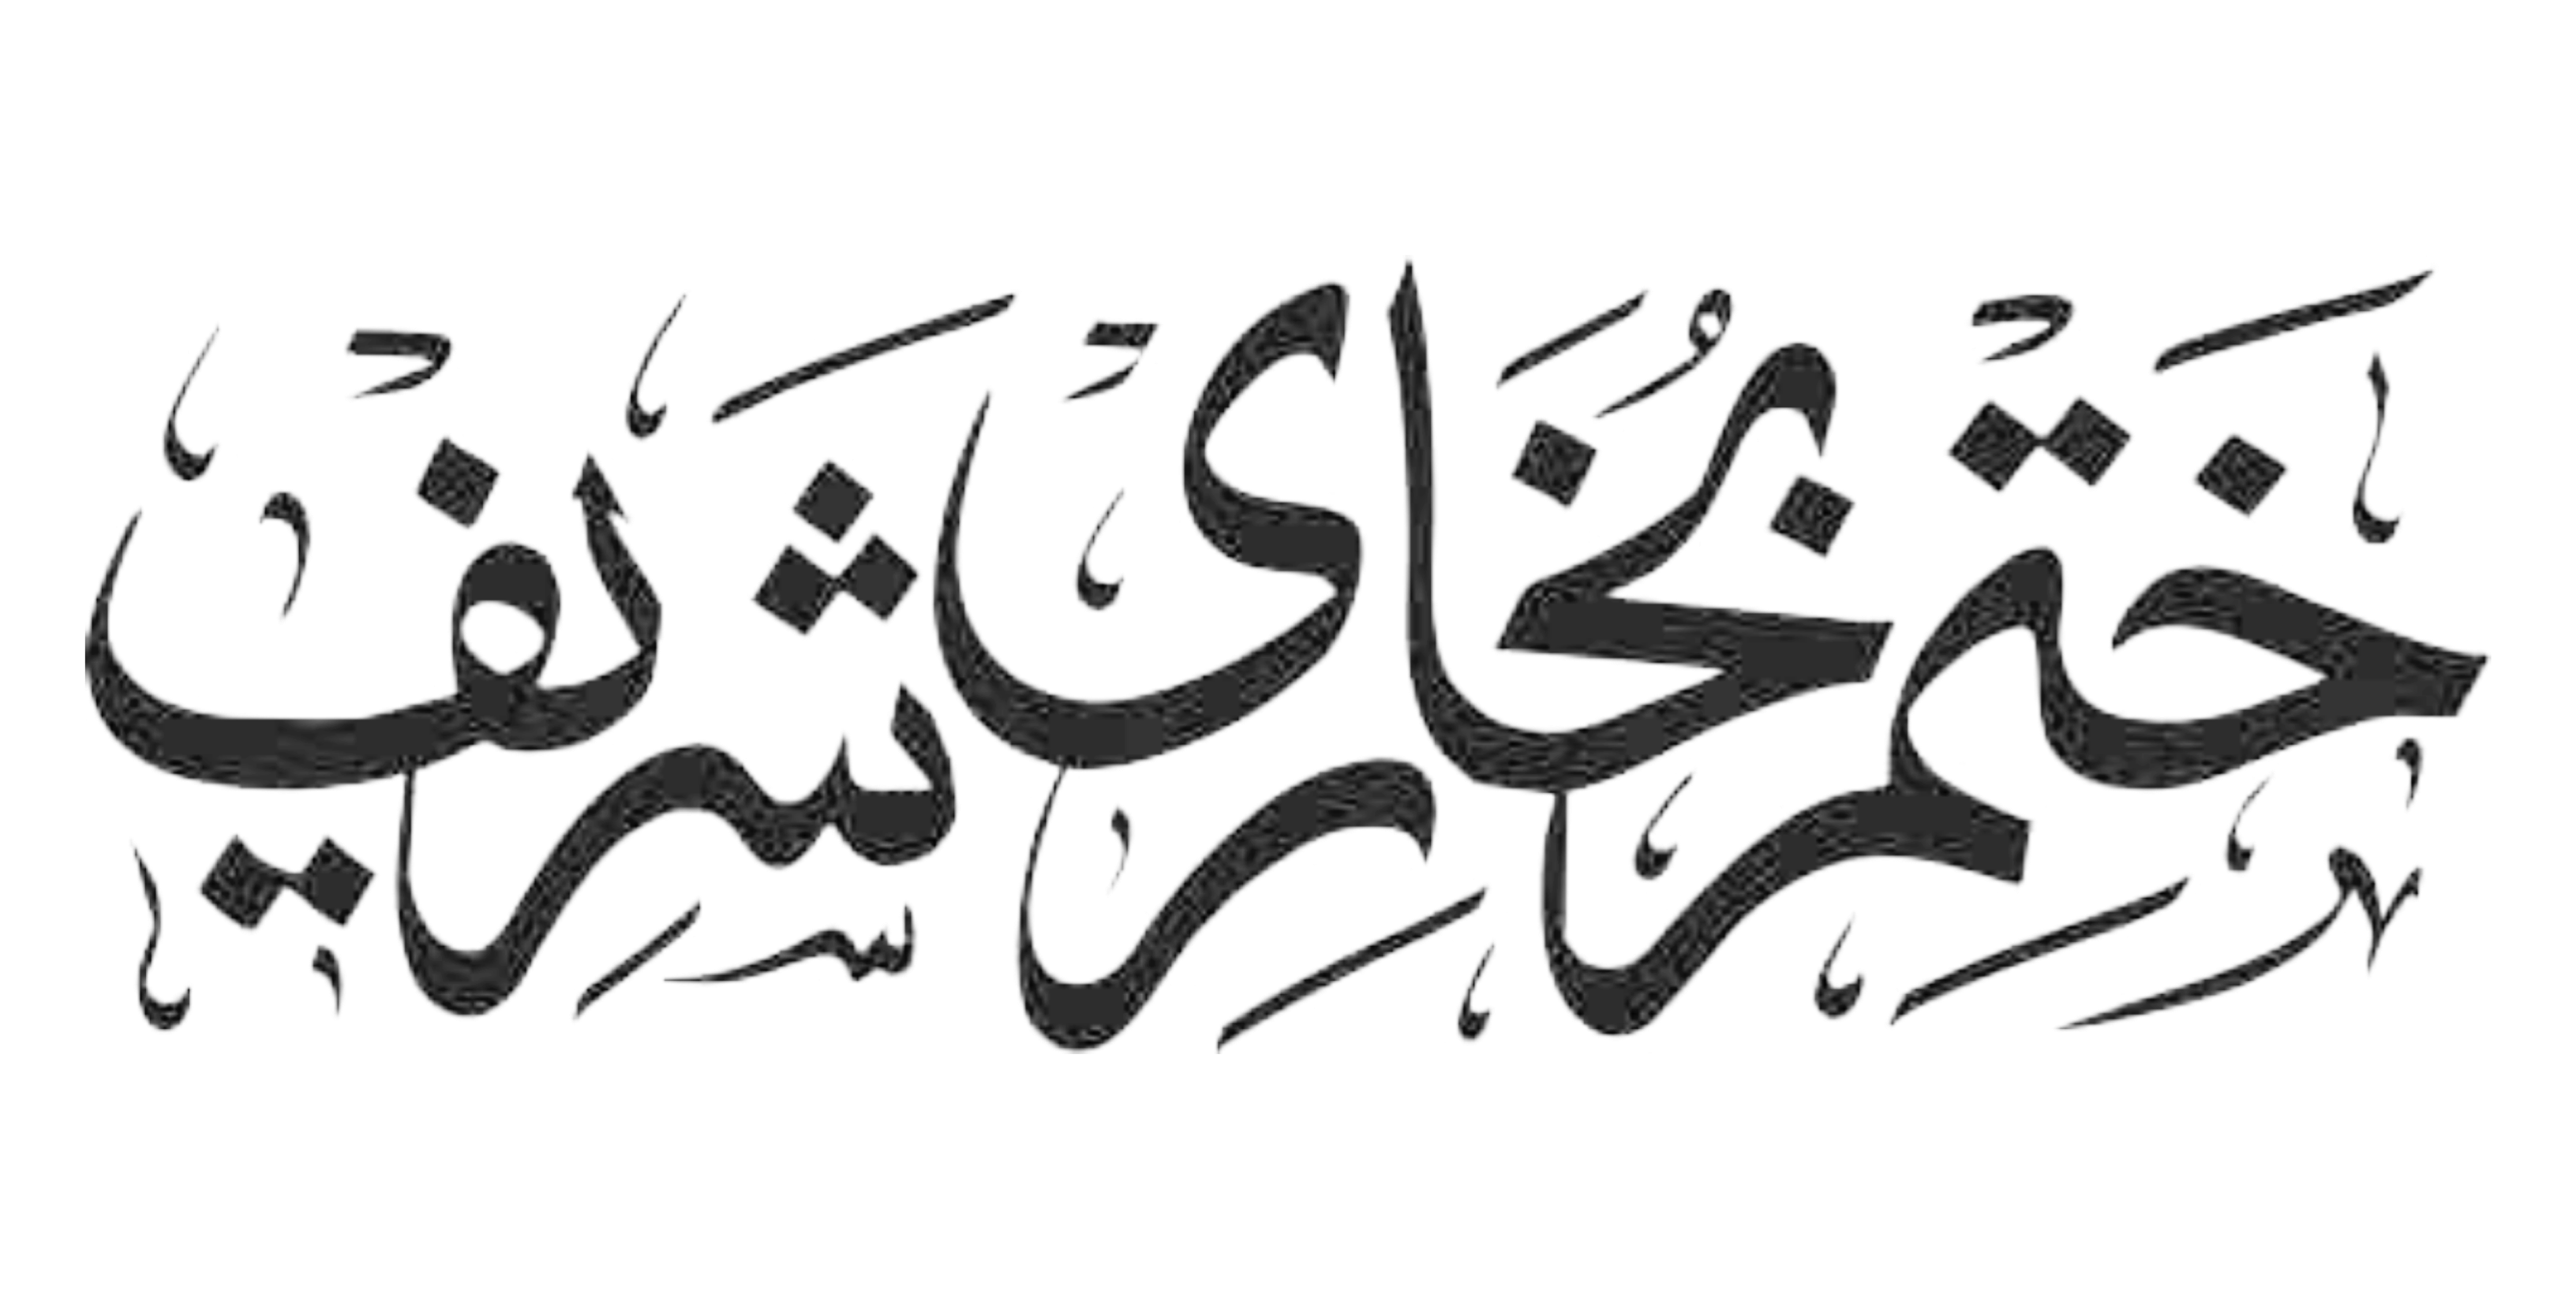 ختم بخاری شریف